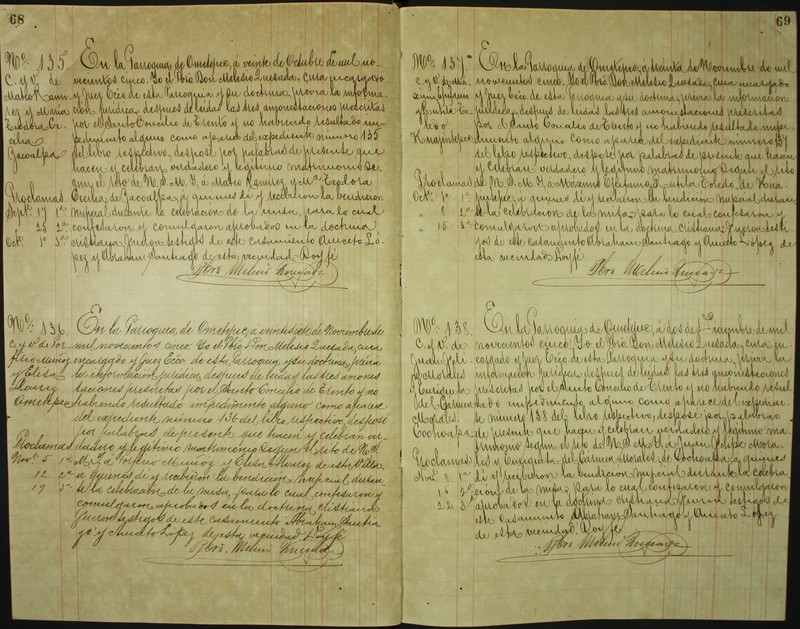 68
Nº. 135.
C. y V. de
Mateo Rami-
rez y Maria
Teodora Ce-
cilia
Cacoalpa
Proclamas
Sept. 17 1ª
" 24 2ª
Oct. 1º 3ª
En la Parroquia de Ometepec, á veinte de Octubre de mil no-
vecientos cinco. Yo el Pbro Don Melesio Quesada, cura encargado
y Juez Ecco de esta Parroquia y su doctrina, previa la informa-
cion juridica, despues de leidas las tres amonestaciones prescritas
por el Santo Concilio de Trento y no habiendo resultado im-
pedimento alguno como aparece del expediente número 135
del libro respectivo, desposé por palabras de presente que
hacen y celebran verdadero y legitimo matrimonio se-
gun el rito de N. S. M. Y. á Mateo Ramirez y Mª Teodora
Cecilia de Cacoalpa, á quienes dí y recibieron la bendicion
nupcial durante la celebracion de la misa, para lo cual
confesaron y comulgaron aprobados en la doctrina
cristiana. Fueron testigos de este casamiento Aniceto Ló-
pez y Abraham Santiago de esta vecindad. Doy fé
Pbro. Melesio Quesada
Nº. 136.
C. y V. de Por-
firio Muñoz
y Elesa
Alvarez
Ometepec
Proclamas
Nov. 5 1ª
12 2ª
19 3ª
En la Parroquia de Ometepec, á veintisiete de Noviembre de
mil novecientos cinco. Yo el Pbro Don Melesio Quesada, cura
encargado y Juez Ecco de esta Parroquia y su doctrina, previa
la informacion juridica, despues de leidas las tres amones-
taciones prescritas por el Santo Concilio de Trento y no
habiendo resultado impedimento alguno como aparece
del expediente número 136 del libro respectivo, desposé
por palabras de presente que hacen y celebran ver-
dadero y legitimo matrimonio segun el rito de N. S.
M. Y. á Porfirio Muñoz y Elesa Alvarez de esta Villa
á quienes dí y recibieron la bendicion nupcial duran-
te la celebracion de la misa, para lo cual confesaron y
comulgaron aprobados en la doctrina cristiana
Fueron testigos de este casamiento Abraham Santia-
go y Aniceto López de esta vecindad. Doy fé
Pbro. Melesio Quesada
69
Nº. 137
C. y V. de Má-
ximo Epifanio
y Rutila To-
ledo
Huajintepec
Proclamas
Oct. 1º 1ª
" 8 2ª
" 15 3ª
En la Parroquia de Ometepec, á treinta de Noviembre de mil
novecientos cinco. Yo el Pbro Don Melesio Quesada, cura encargado
y Juez Ecco de esta Parroquia y su doctrina, previa la informacion
juridica, despues de leidas las tres amonestaciones prescritas
por el Santo Concilio de Trento y no habiendo resultado impe-
dimento alguno como aparece del expediente número 137
del libro respectivo, desposé por palabras de presente que hacen
y celebran verdadero y legitimo matrimonio segun el rito
de N. S. M. Y. á Máximo Epifanio y Rutila Toledo, de Hua-
jintepec, á quienes dí y recibieron la bendicion nupcial duran-
te la celebracion de la misa, para lo cual confesaron y
comulgaron aprobados en la doctrina cristiana. Fueron testi-
gos de este casamiento Abraham Santiago y Aniceto López de
esta vecindad. Doy fé
Pbro. Melesio Quesada
Nº. 138.
C. y V. de
Juan Feli-
pe Morales
y Enriqueta
del Carmen
Morales.
Cochoapa
Proclamas
Nov. 8 1ª
15 2ª
22 3ª
En la Parroquia de Ometepec, á dos de Diciembre de mil
novecientos cinco. Yo el Pbro Don Melesio Quesada, cura en-
cargado y Juez Ecco de esta Parroquia y su doctrina, previa la
informacion juridica, despues de leidas las tres amonestaciones
prescritas por el Santo Concilio de Trento y no habiendo resul-
tado impedimento alguno como aparece del expedien-
te número 138 del libro respectivo, desposé por palabras
de presente que hacen y celebran verdadero y legitimo ma-
trimonio segun el rito de N. S. M. Y. á Juan Felipe Mora-
les y Enriqueta del Carmen Morales de Cochoapa, á quienes
dí y recibieron la bendicion nupcial durante la celebra-
cion de la misa, para lo cual confesaron y comulgaron
aprobados en la doctrina cristiana. Fueron testigos de
este casamiento Abraham Santiago y Aniceto López
de esta vecindad. Doy fé
Pbro. Melesio Quesada